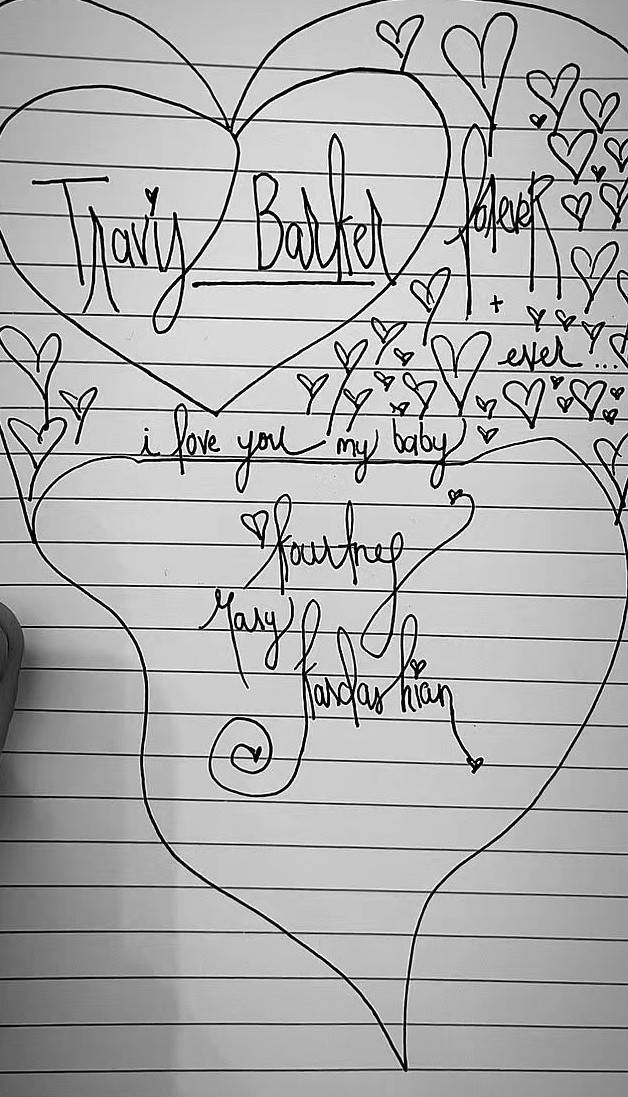 Travis Barker
forever
+
ever...
i love you my baby
Kourtney
Mary
Kardashian